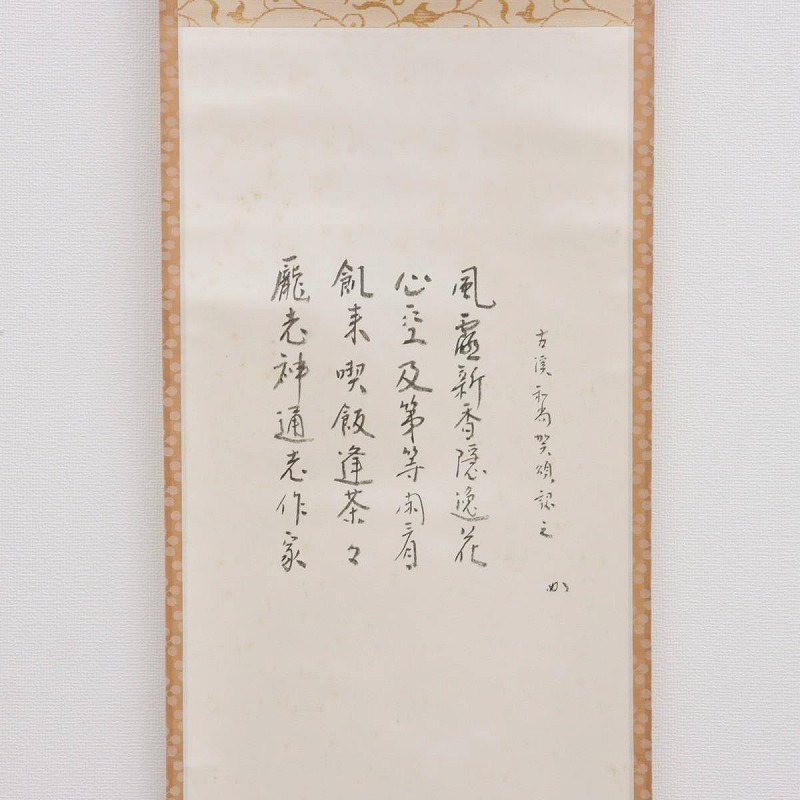 龐老神通老作家
飢来喫飯逢茶々
心空及第等閑看
風露新香隠逸花
古溪和尚賀頌認之